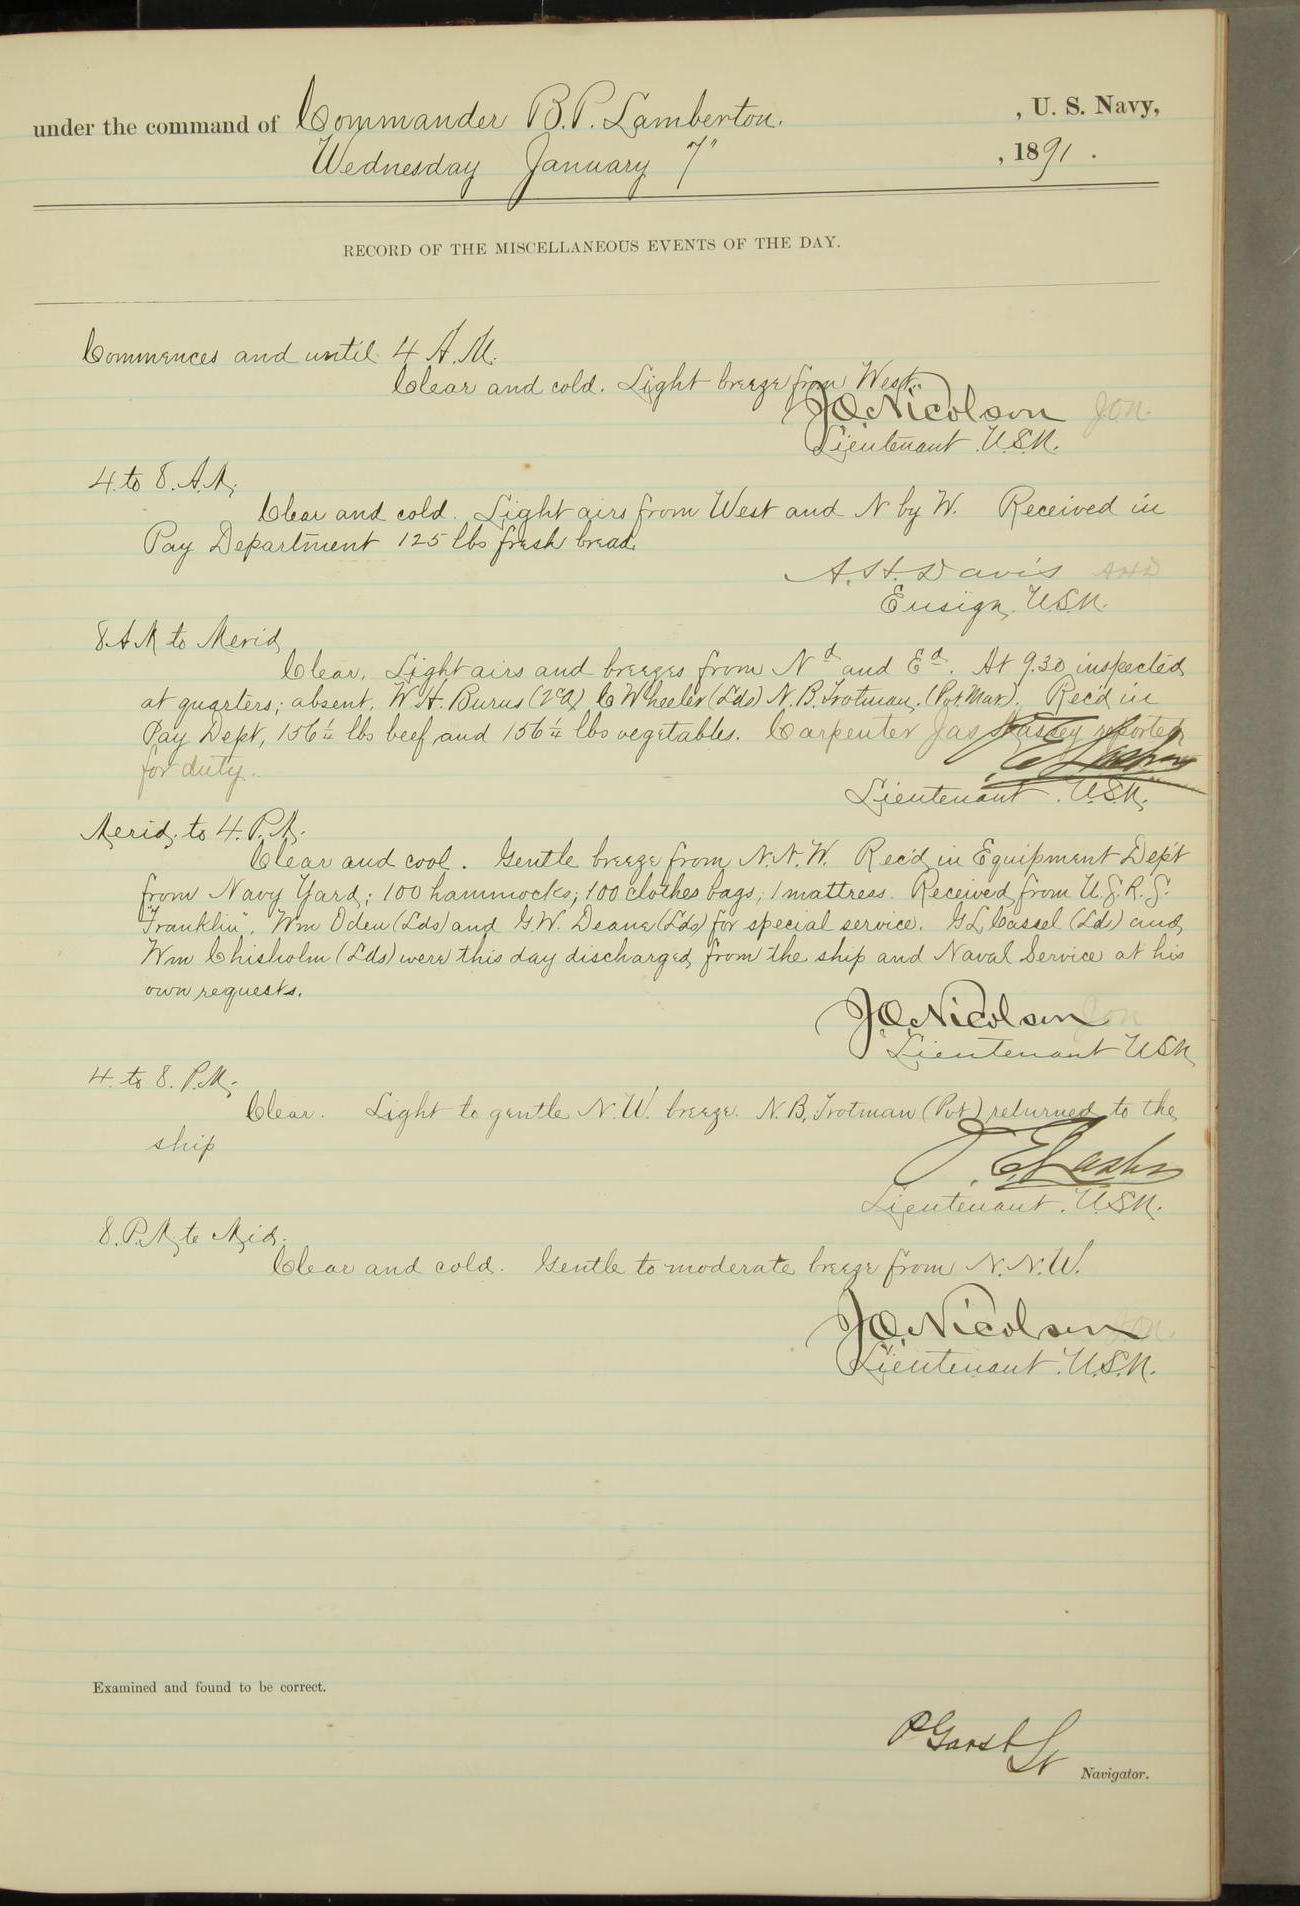 under the command of Commander B.P. Lamberton. , U. S. Navy,
Wednesday January 7" , 1891 .
RECORD OF THE MISCELLANEOUS EVENTS OF THE DAY.
Commences and until 4 A.M.
Clear and cold. Light breeze from West.
JONicolson JON.
Lieutenant U.S.N.
4 to 8. A.M.
Clear and cold. Light airs from West and N by W. Received in
Pay Department 125 lbs fresh bread.
A.H. Davis AHD
Ensign, U.S.N.
8 AM to Merid,
Clear. Light airs and breezes from Nd and Ed. At 9.30 inspected
at quarters; absent, W.H. Burns C Wheeler (Lds) N.B. Trotman. (Pvt Mar). Rec'd in
Pay Dept, 156¼ lbs beef and 156¼ lbs vegetables. Carpenter Jas reported
for duty.
Lieutenant. U.S.N.
Merid. to 4. P.M.
Clear and cool. Gentle breeze from N.N.W. Rec'd in Equipment Dep't
from Navy Yard; 100 hammocks; 100 clothes bags, 1 mattress. Received from U.S.R.S.
"Franklin", Wm Oden (Lds) and G.W. Deane (Lds) for special service. G L Cassel (Ld) and
Wm Chisholm (Lds) were this day discharged from the ship and Naval Service at his
own requests.
JONicolson JON
Lieutenant USN
4. to 8. P.M.
Clear. Light to gentle N.W. breeze. N.B. Trotman (Pvt) returned to the
ship
Lieutenant. U.S.N.
8. P.M. to Mid.
Clear and cold. Gentle to moderate breeze from N.N.W.
JONicolson JON.
Lieutenant. U.S.N.
Examined and found to be correct.
P Garst Lt
Navigator.